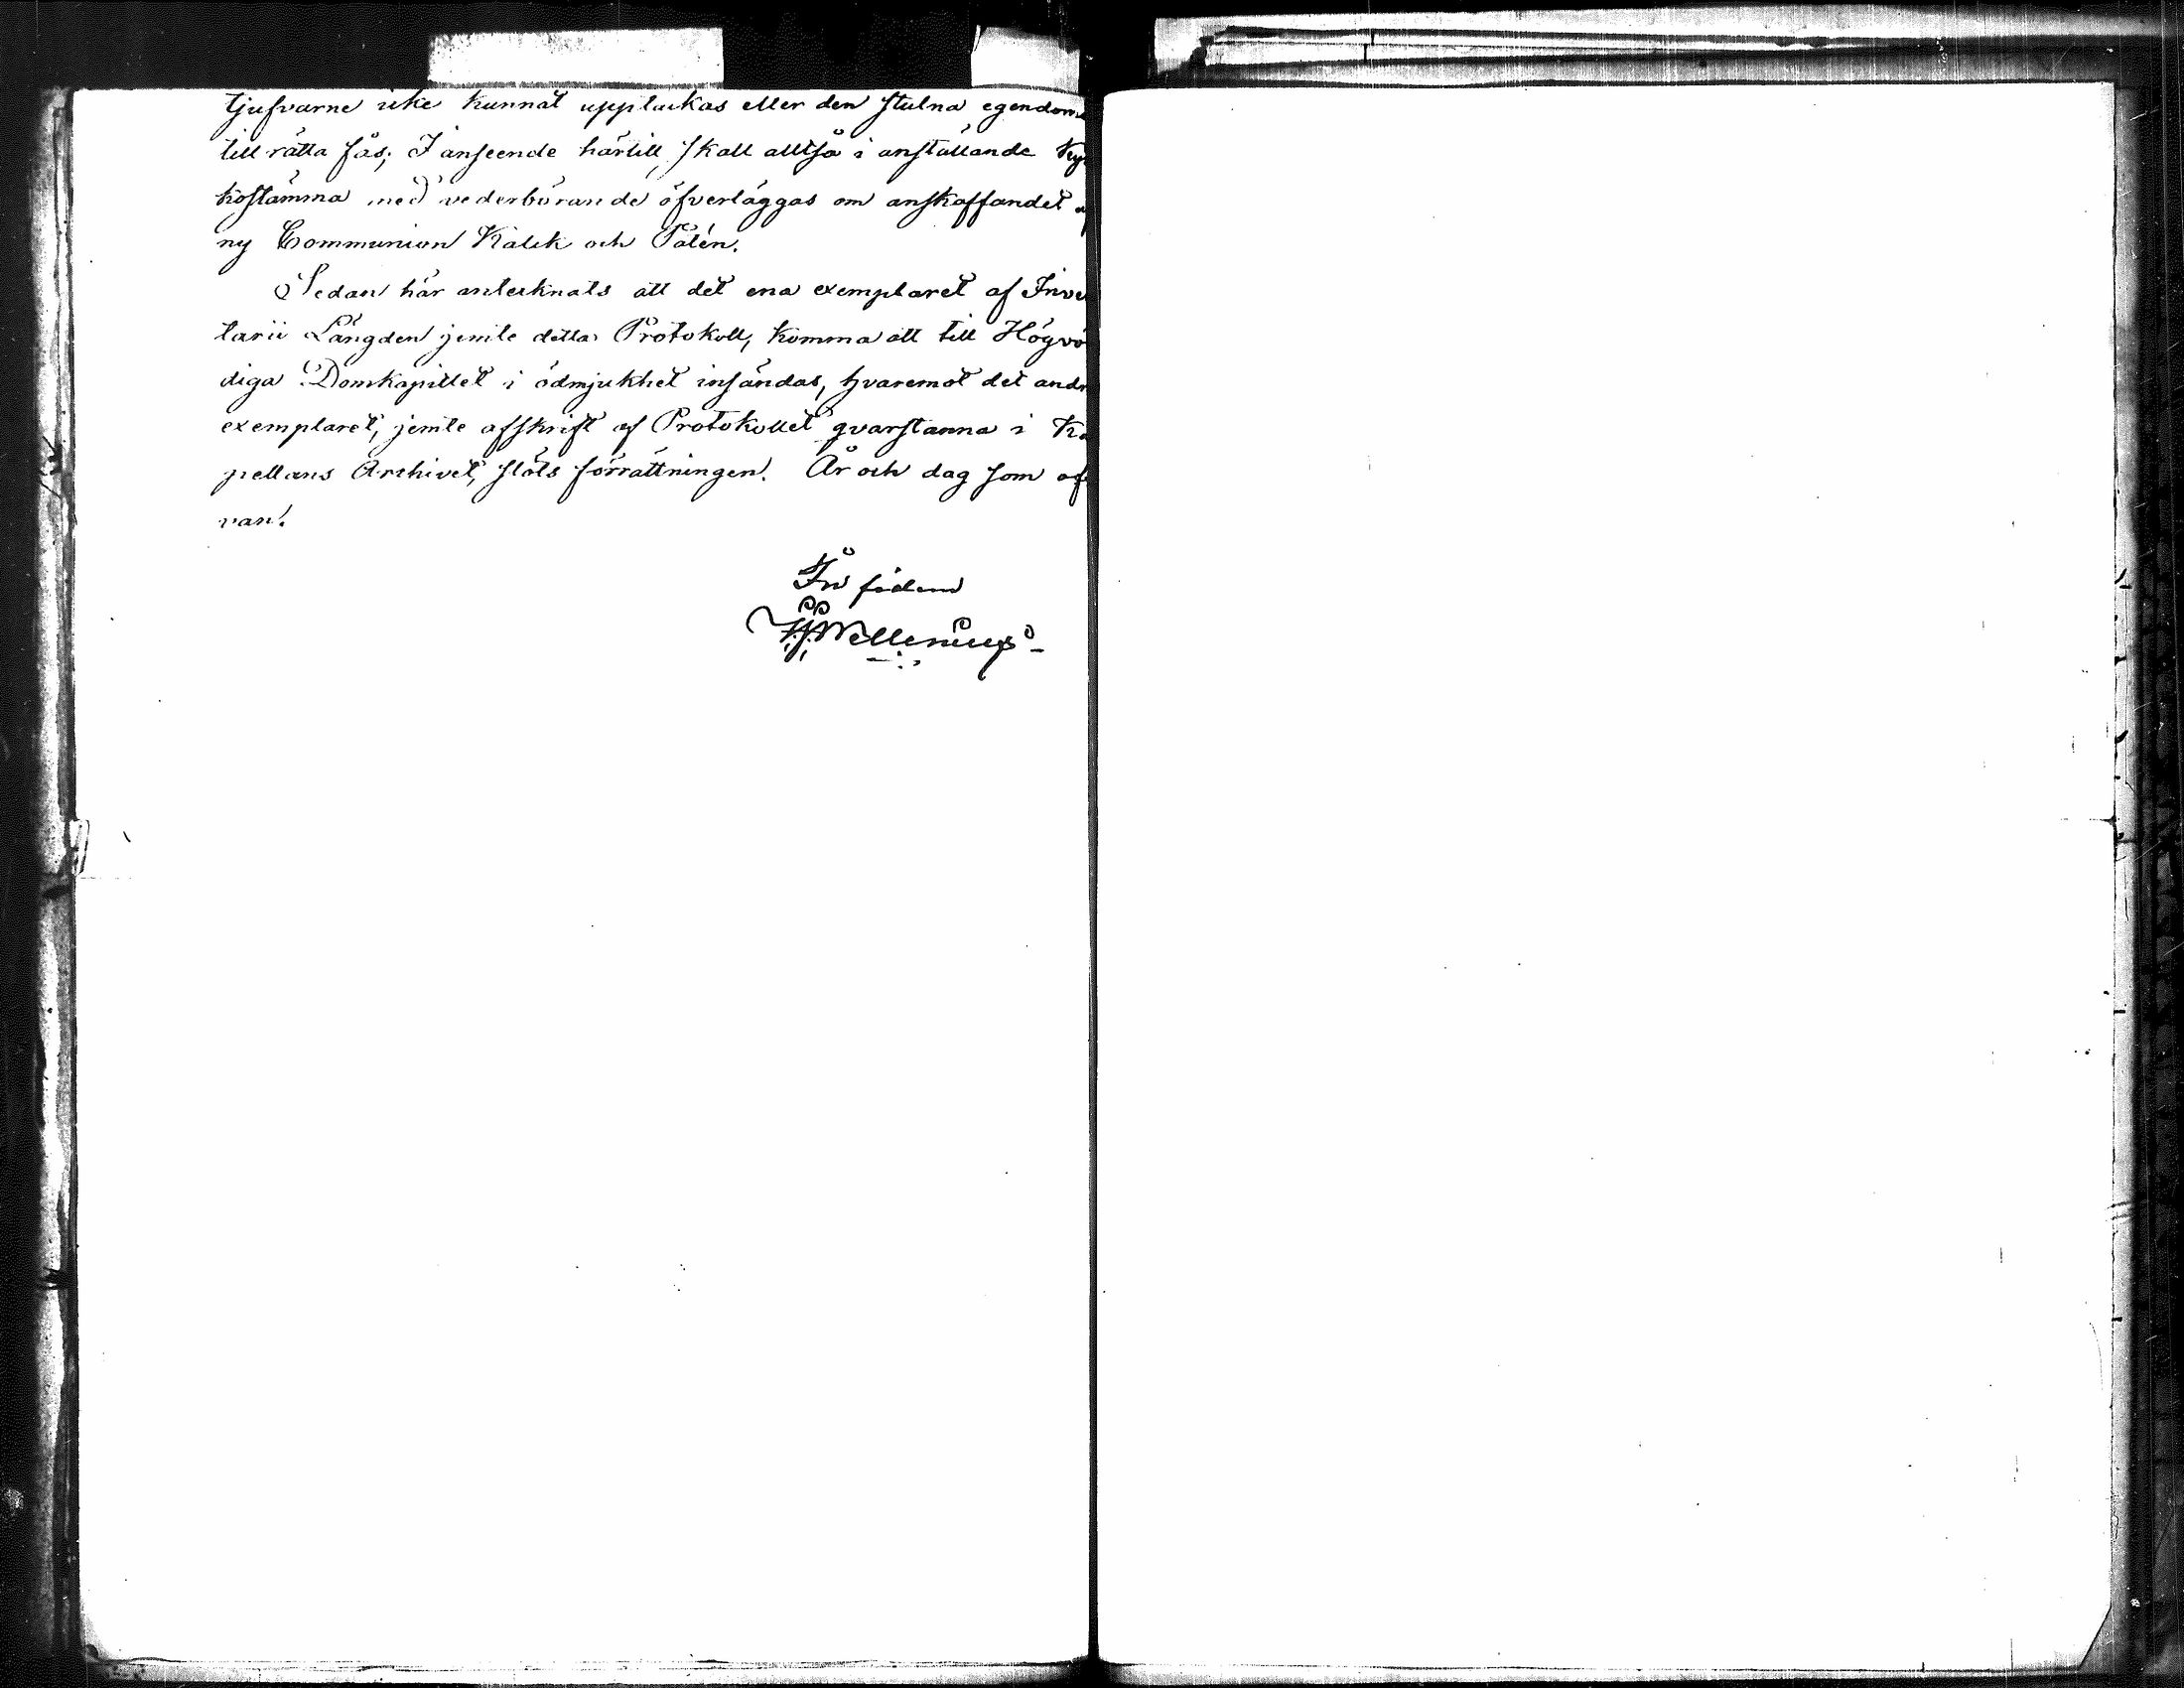 tjufvarne icke kunnat upptäckas eller den stulna egendom
till rätta fås; I anseende härtill, skall alltså i anställande Kyr
kostämma med vederbörande öfverläggas om anskaffandet af
ny Communion Kalck och Patén.
Sedan här antecknats att det ena exemplaret af Inven
tarii Längden jemte detta Protokoll, komma att till Högvör
diga Domkapitlet i ödmjukhet insändas, hvaremot det andra
exemplaret, jemte afskrift af Protokollet qvarstanna i Ka
pellans Archivet, slöts förrättningen. År och dag som of
van.
In fidem
Wellenius